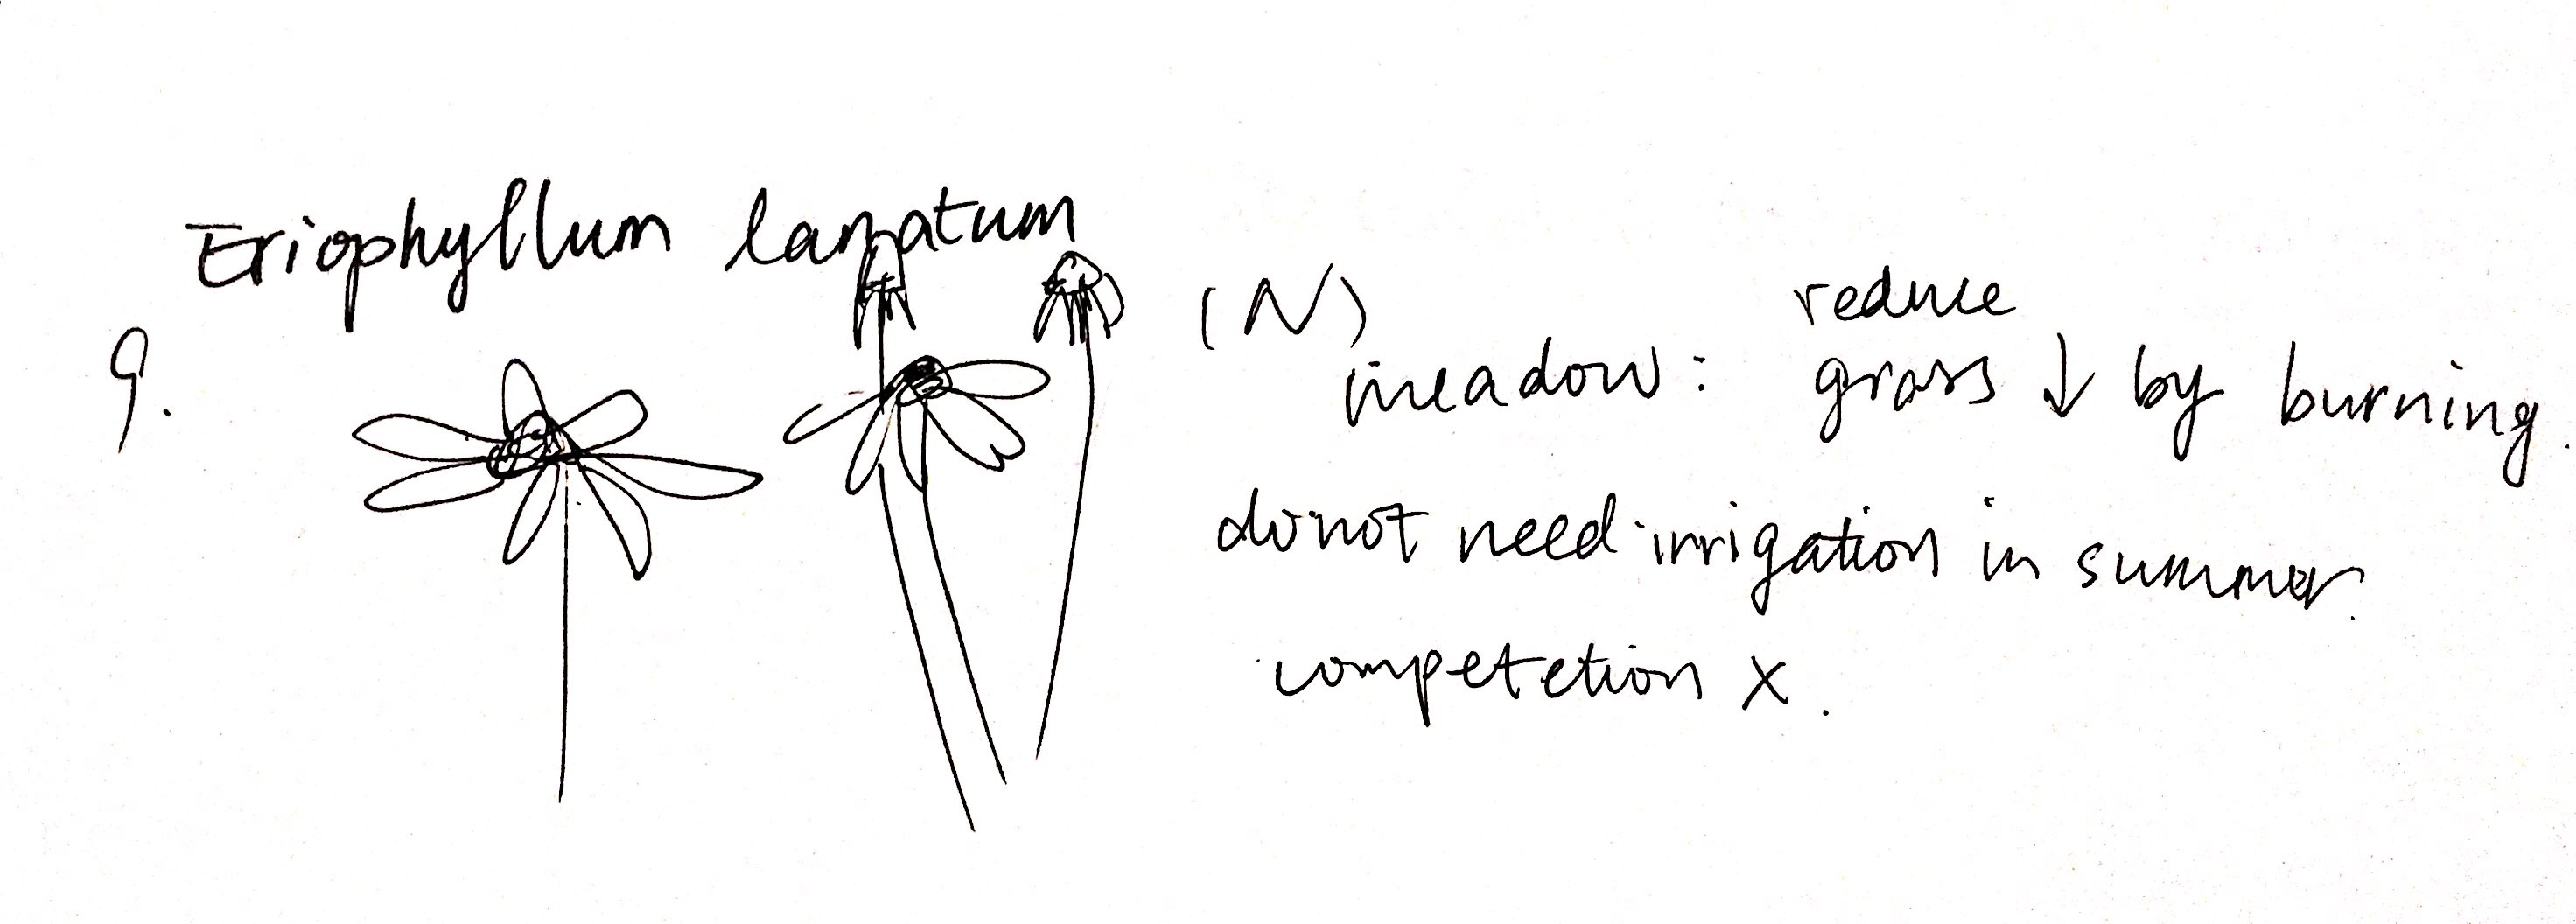 Eriophyllum lanatum
9.
(N)
reduce
meadow: grass ↓ by burning.
do not need irrigation in summer.
competetion x.